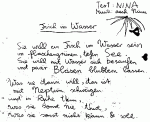 Text NINA
Musik auch Nina
Fisch im Wasser
Sie will ein Fisch im Wasser sein
im flaschengrünen tiefen See
Sie will mit Wasser sich besaufen
und paar Blasen blubbern lassen
Was sie dann will, das ist
mit Neptun schwingen
und in Ruhe
was sie sonst nie
was sie sonst nicht können &